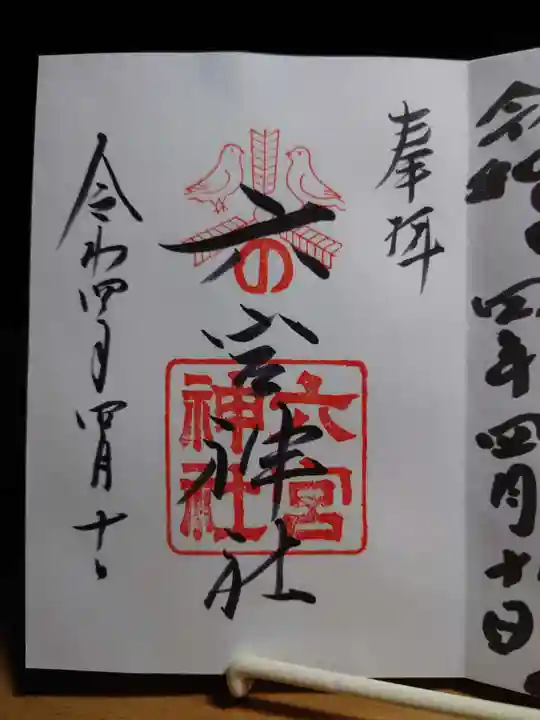 令和四年四月十日
奉拝
六宮神社
の
六宮
神社
令和四年四月十日